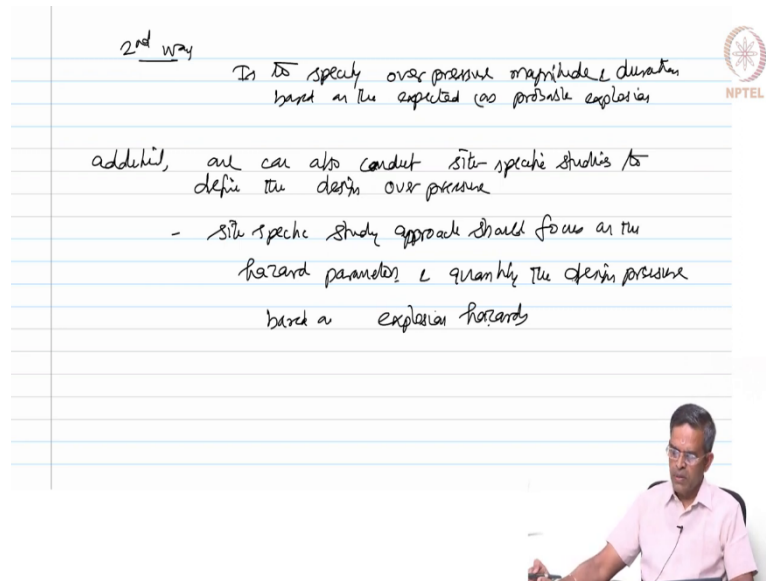 2nd way
Is to specify over pressure magnitude & duration
based on the expected (or) probable explosion
NPTEL
additional, one can also conduct site-specific studies to
define the design over pressure
- site specific study approach should focus on the
hazard parameters & quantify the design pressure
based on explosion hazards